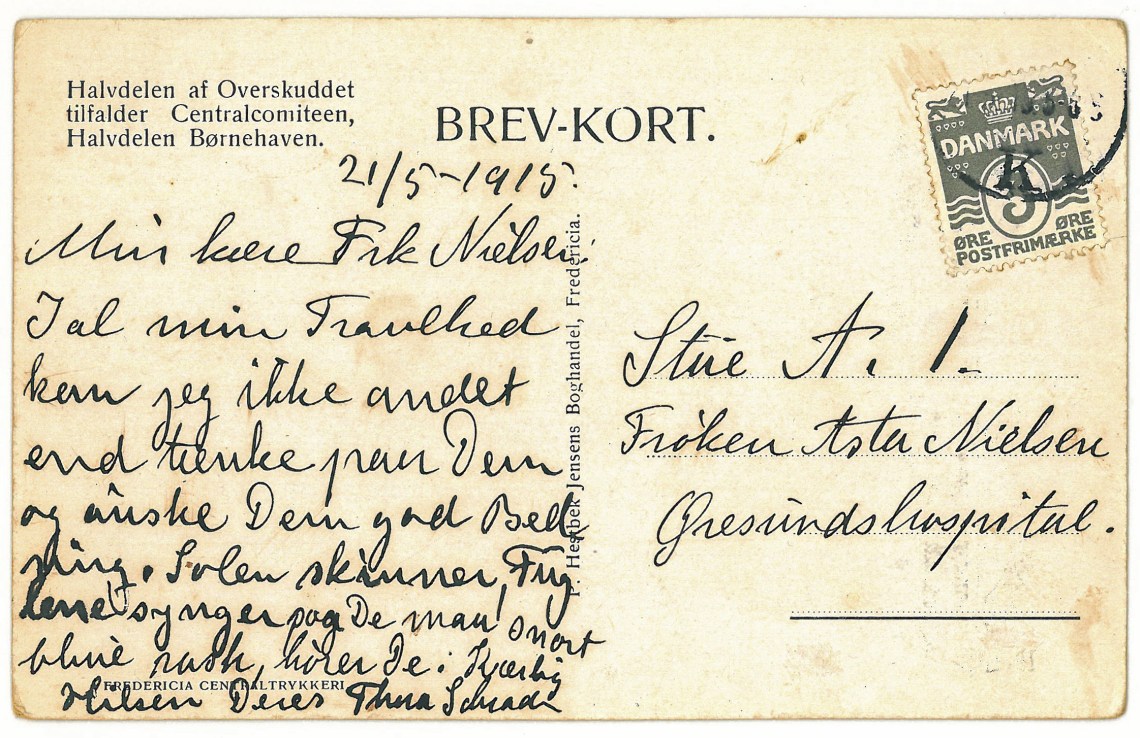 Halvdelen af Overskuddet
tilfalder Centralcomiteen,
Halvdelen Børnehaven.
BREV-KORT.
21/5-1915.
Min kære Frk Nielsen!
I al min Travlhed
kan jeg ikke andet
end tænke paa Dem
og önske Dem god Bed
ring. Solen skinner, Fug
lene synger, og De maa snart
blive rask, hører De! Kærlig
Hilsen Deres Thora
P. Hestbek Jensens Boghandel, Fredericia.
FREDERICIA CENTRALTRYKKERI
DANMARK
5
ØRE ØRE
POSTFRIMÆRKE
K
Stue A. 1.
Fröken Asta Nielsen
Øresundshospital.